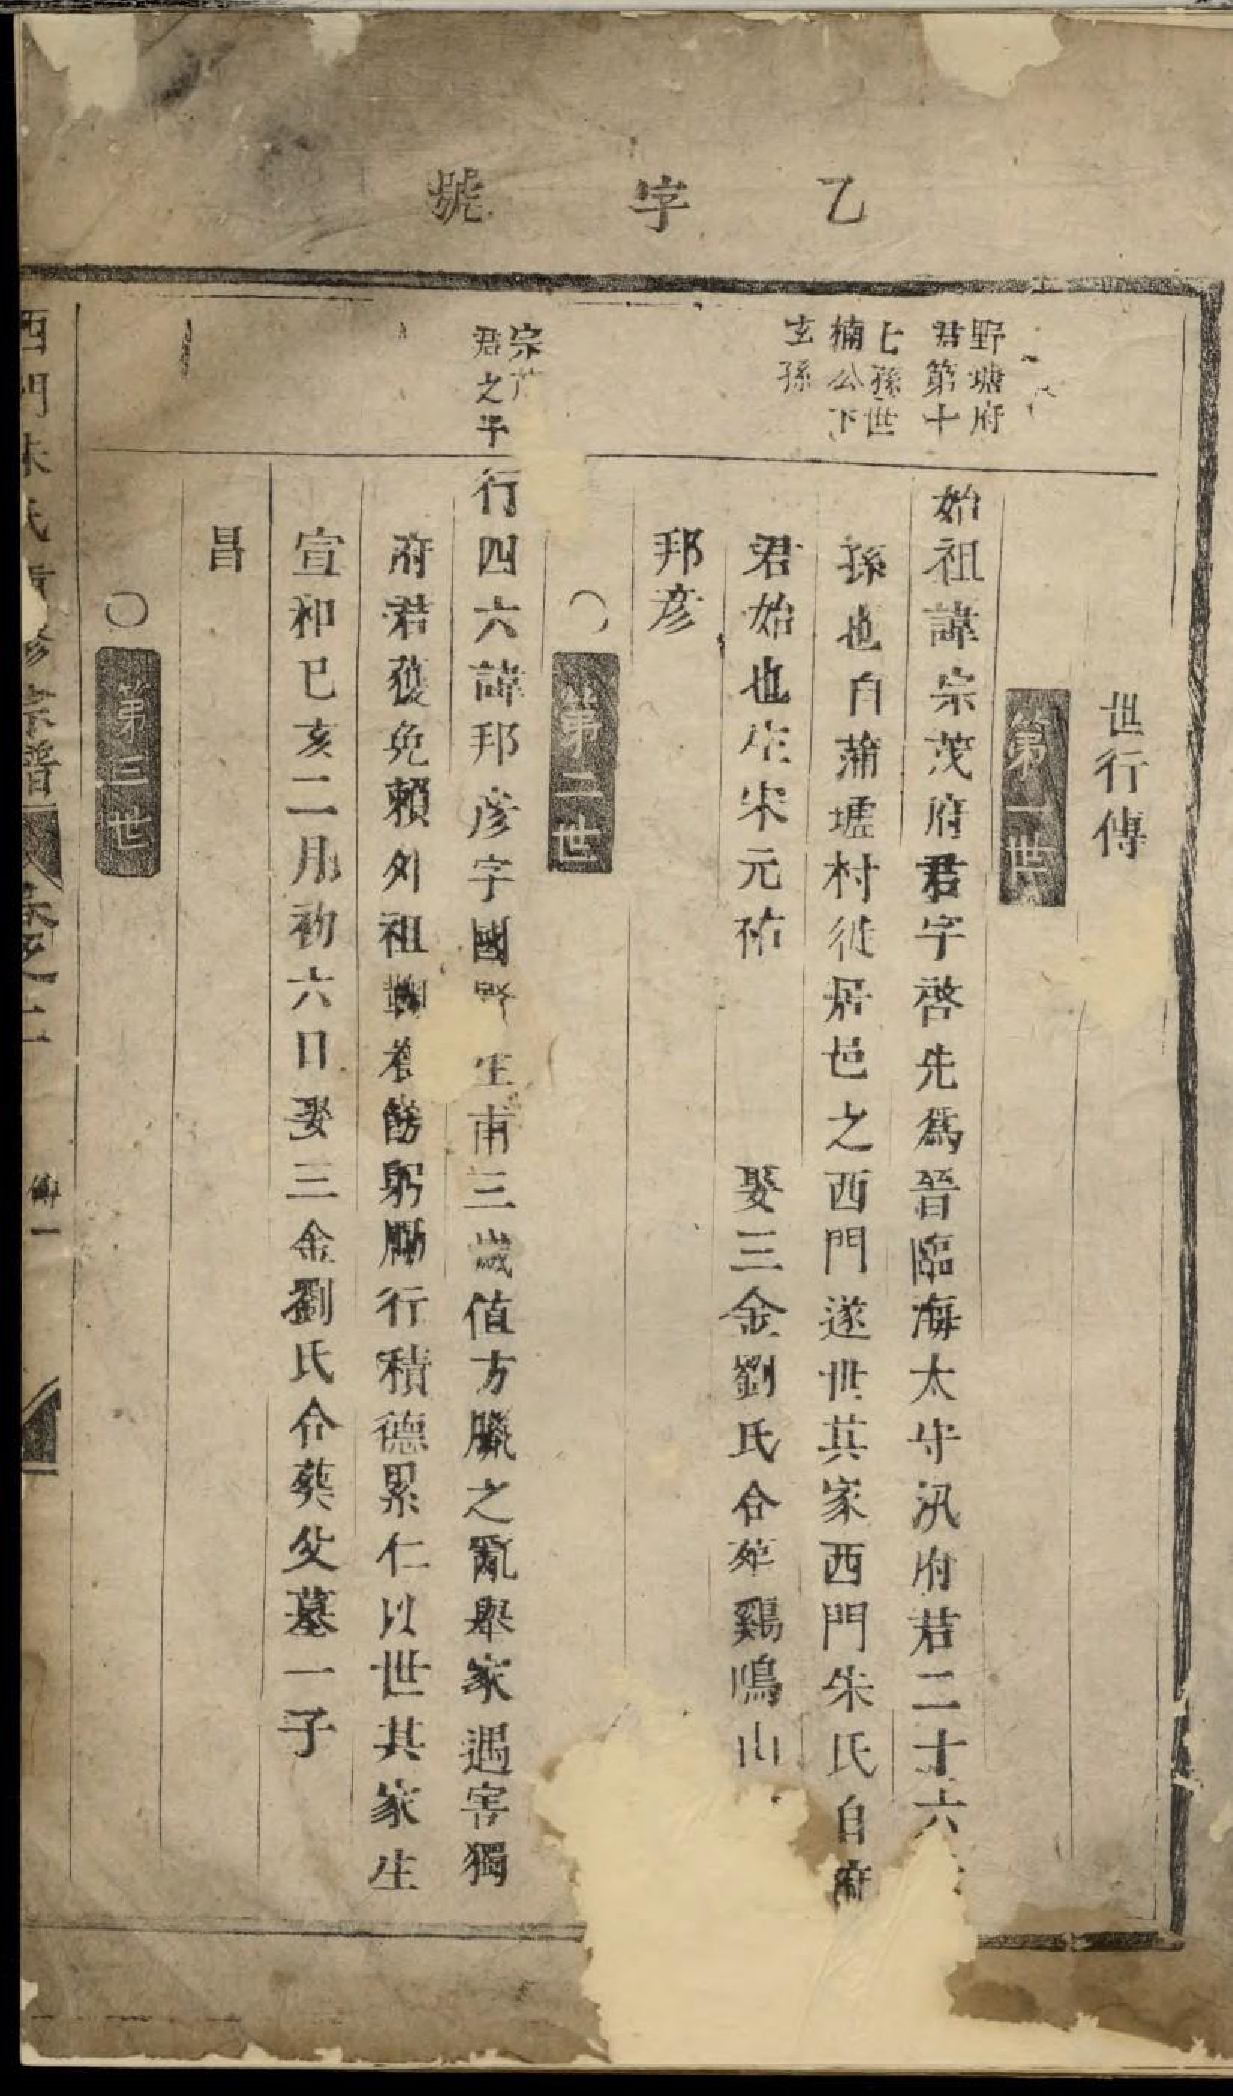 乙字號
世行傳
第一世
野塘府
君第十
七孫世
楠公下
玄孫
始祖諱宗茂府君字啓先爲晉臨海太守汛府君二十六
孫也自蒲墟村徙居邑之西門遂世其家西門朱氏自府
君始也生宋元祐 娶三金劉氏合葬鷄鳴山
邦彦
第二世
宗
君之子
行四六諱邦彦字國 生甫三歲值方臘之亂舉家遇害獨
府君獲免賴外祖鞠養飭躬勵行積德累仁以世其家生
宣和已亥二月初六日娶三金劉氏合葬父墓一子
昌
第三世
西門朱氏 修宗譜 卷之二
傳一